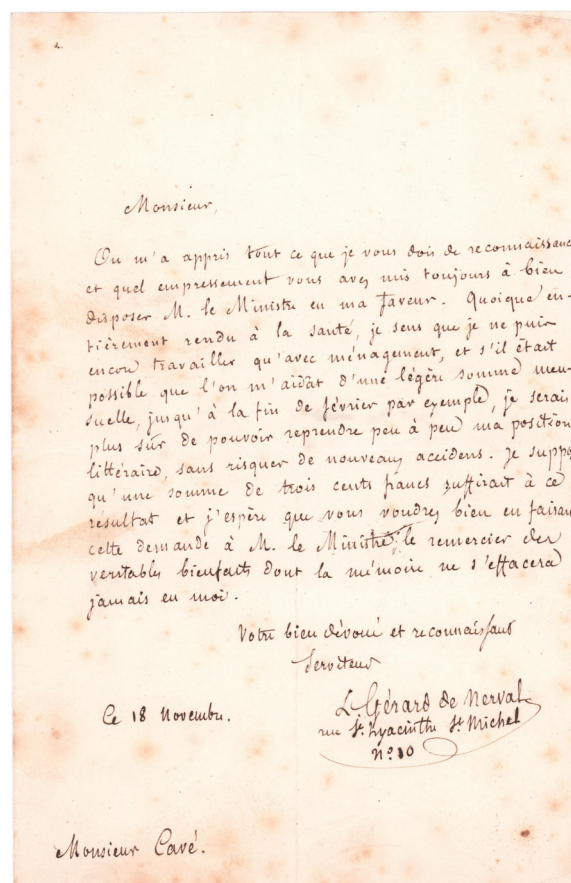 Monsieur,
On m'a appris tout ce que je vous dois de reconnaissance
et quel empressement vous avez mis toujours à bien
disposer M. le Ministre en ma faveur. Quoique en-
tièrement rendu à la santé, je sens que je ne puis
encore travailler qu'avec ménagement, et s'il était
possible que l'on m'aidât d'une légère somme men-
suelle, jusqu'à la fin de février par exemple, je serais
plus sûr de pouvoir reprendre peu à peu ma position
littéraire, sans risquer de nouveaux accidens. Je suppo
qu'une somme de trois cents francs suffirait à ce
résultat et j'espère que vous voudrez bien en faisan
cette demande à M. le Ministre, le remercier des
veritables bienfaits dont la mémoire ne s'effacera
jamais en moi.
Votre bien dévoué et reconnaissant
Serviteur
Gérard de Nerval
rue St. Hyacinthe St. Michel
nº 10
Ce 18 Novembre.
Monsieur Cavé.